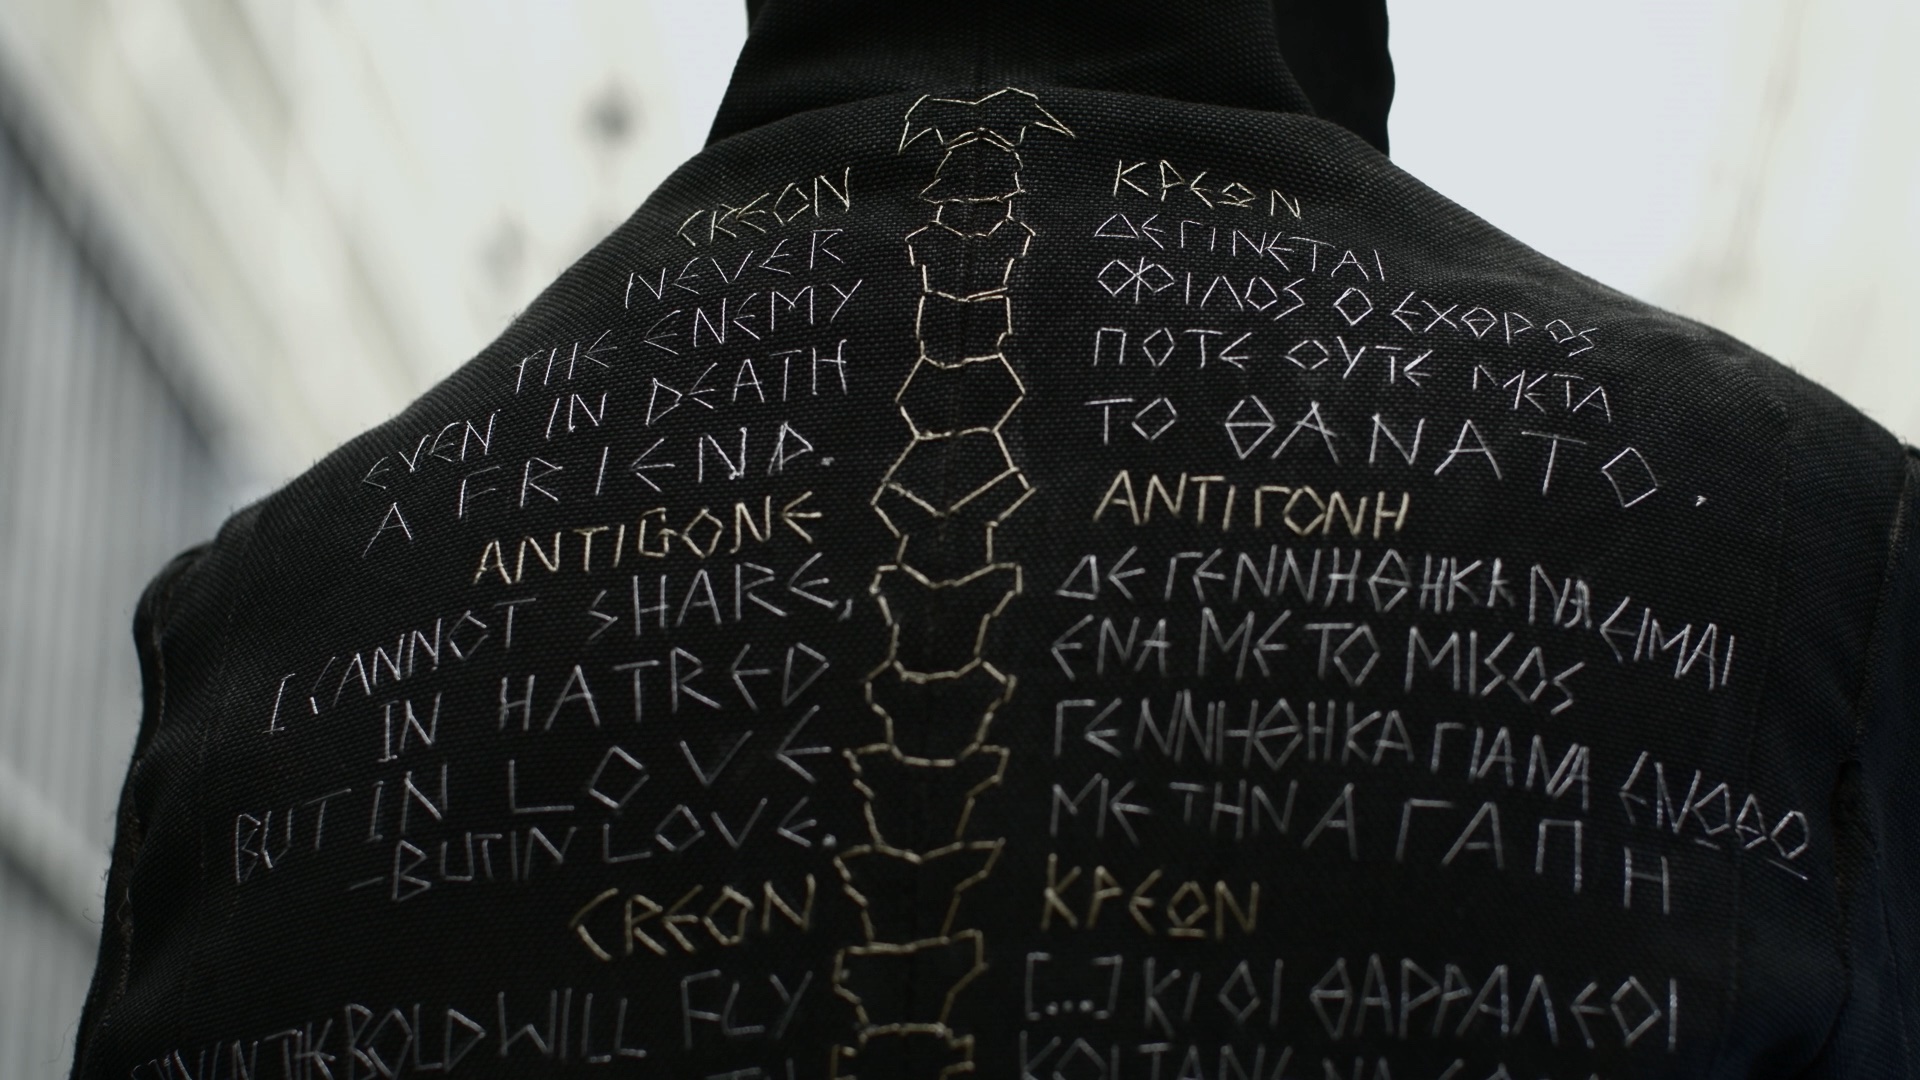 CREON
NEVER
THE ENEMY
EVEN IN DEATH
A FRIEND.
ANTIGONE
I CANNOT SHARE,
IN HATRED
BUT IN LOVE
–BUT IN LOVE.
CREON
EVEN THE BOLD WILL FLY
ΚΡΕΩΝ
ΔΕ ΓΙΝΕΤΑΙ
Ο ΦΙΛΟΣ Ο ΕΧΘΡΟΣ
ΠΟΤΕ ΟΥΤΕ ΜΕΤΑ
ΤΟ ΘΑΝΑΤΟ.
ΑΝΤΙΓΟΝΗ
ΔΕ ΓΕΝΝΗΘΗΚΑ ΝΑ ΕΙΜΑΙ
ΕΝΑ ΜΕ ΤΟ ΜΙΣΟΣ
ΓΕΝΝΗΘΗΚΑ ΓΙΑ ΝΑ ΕΝΩΘΩ
ΜΕ ΤΗΝ ΑΓΑΠΗ
ΚΡΕΩΝ
[...] ΚΙ ΟΙ ΘΑΡΡΑΛΕΟΙ